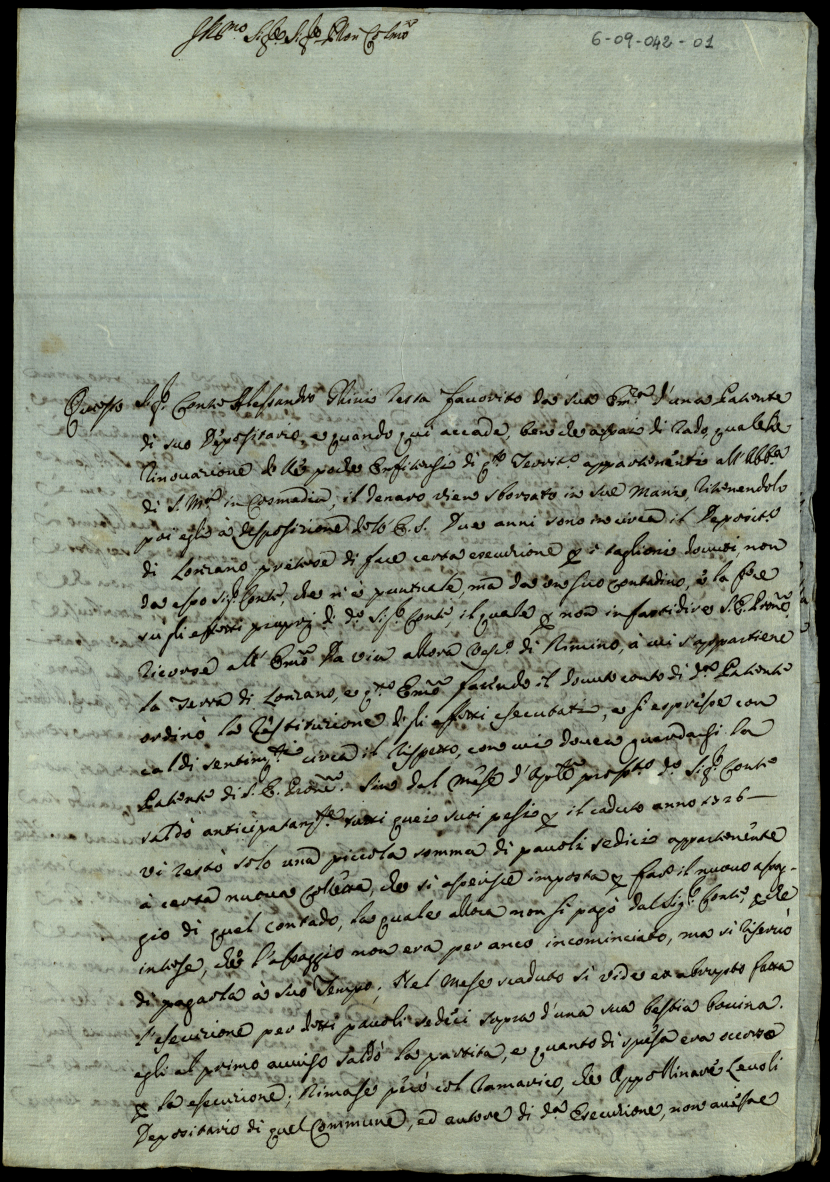 Ill.mo Sig.re Sig.re Pron Col.mo
6-09-042-01
Questo Sig. Conte Alessandro Ghini resta favorito da sua Em.a d'una Patente
di suo Depositario, e quando qui accade, benche assai di rado, qualche
rinovazione delle poche Enfiteusi di q.to Territ.o appartenenti all'Abb.a
di S. M.a in Cosmedin, il denaro vien sborsato in sue Mani, ritenendolo
poi egli à disposizione dell' E. S. Due anni sono in circa il Deposit.o
di Lonzano pretese di fare certa esecuzione p i taglioni dovuti, non
da esso Sig. Conte, che n'è puntuale, mà da un suo Contadino, e la fece
sù gli effetti proprj di d.o Sig. Conte il quale p non infastidire S. E. Pron.e
ricorse all' Em.o Da Via allora Vesc.o di Rimino, à cui s'appartiene
la Terra di Lonzano, e q.to Em.o facendo il dovuto conto di d.a Patente
ordinò la restituzione degli effetti esecutati, e si espresse con
caldi sentim.ti circa il rispetto, con cui dovea guardarsi la
Patente di S. E. Pron.e. Sin dal mese d'Ap.le pross.o d.o Sig. Conte
saldò anticipatam.te tutti quei suoi pesi p il caduto anno 1726
vi restò solo una piccola somma di pavoli sedici appartenente
à certa nuova Colletta, che si asserisce imposta p fare il nuovo apag-
gio di quel contado, la quale allora non si pagò dal Sig. Conte, p che
intese, che l'apaggio non era per anco incominciato, ma si riservò
di pagarla à suo Tempo. Nel mese scaduto si vide ex abrupto fatta
l'esecuzione per detti pavoli sedici sopra d'una sua bestia bovina.
egli al primo avviso saldò la partita, e quanto di spesa era occorso
p la esecuzione; Rimase però col ramarico, che Appollinare Levoli
Depositario di quel Commune, ed autore di d.a Esecuzione, non avesse